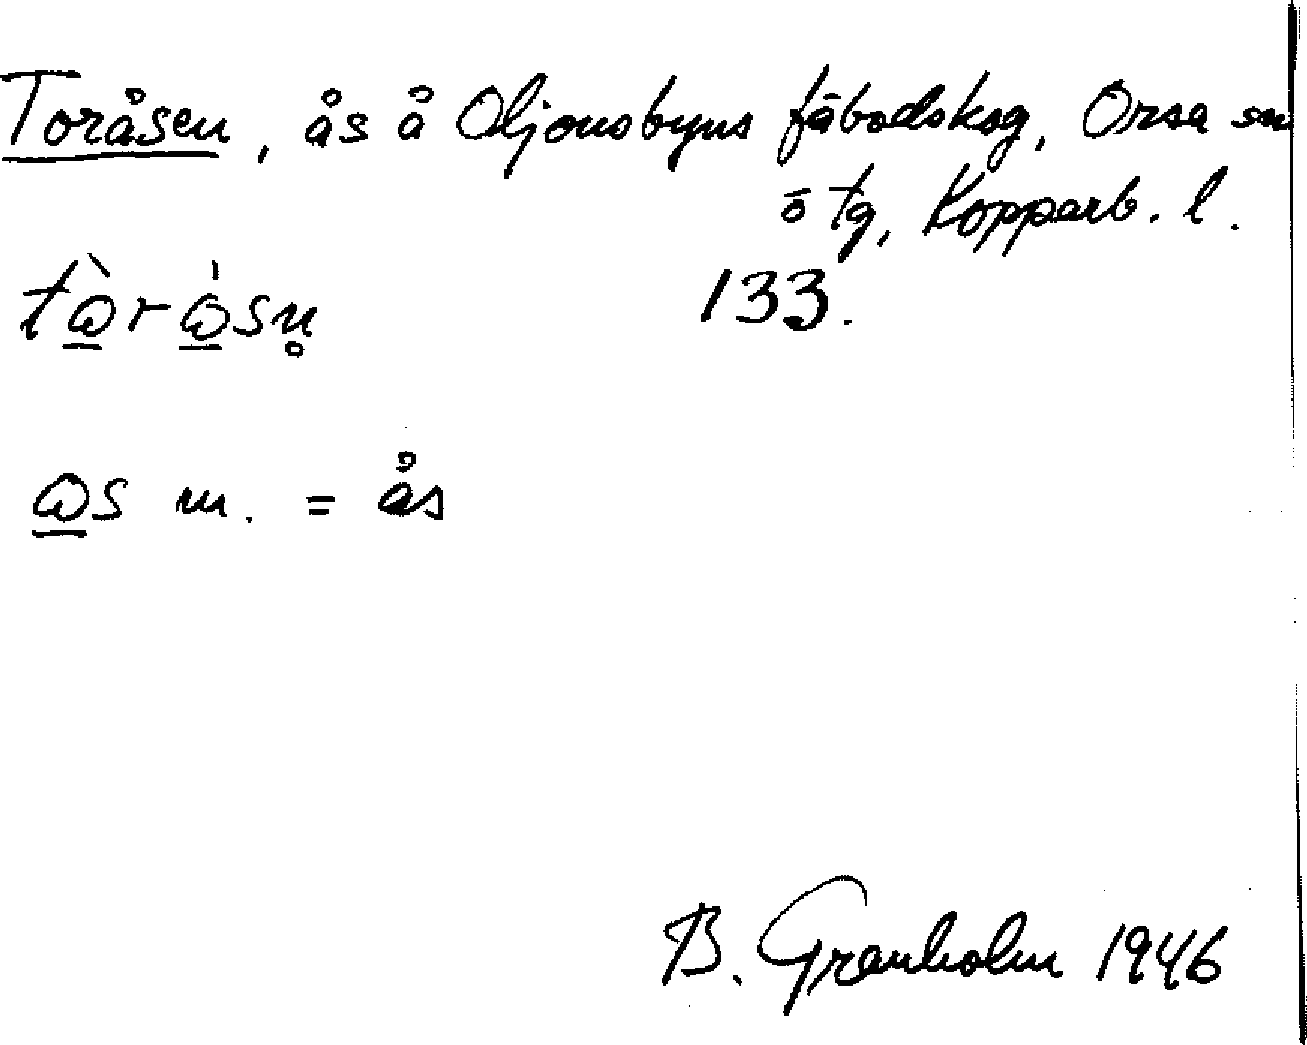 Toråsen, ås å Oljonsbyns fäbodskog, Orsa sn
ö tg, Kopparb. l.
tὼ̲rώ̲sn̥ 133.
ω̲s m. = ås
B. Granholm 1946